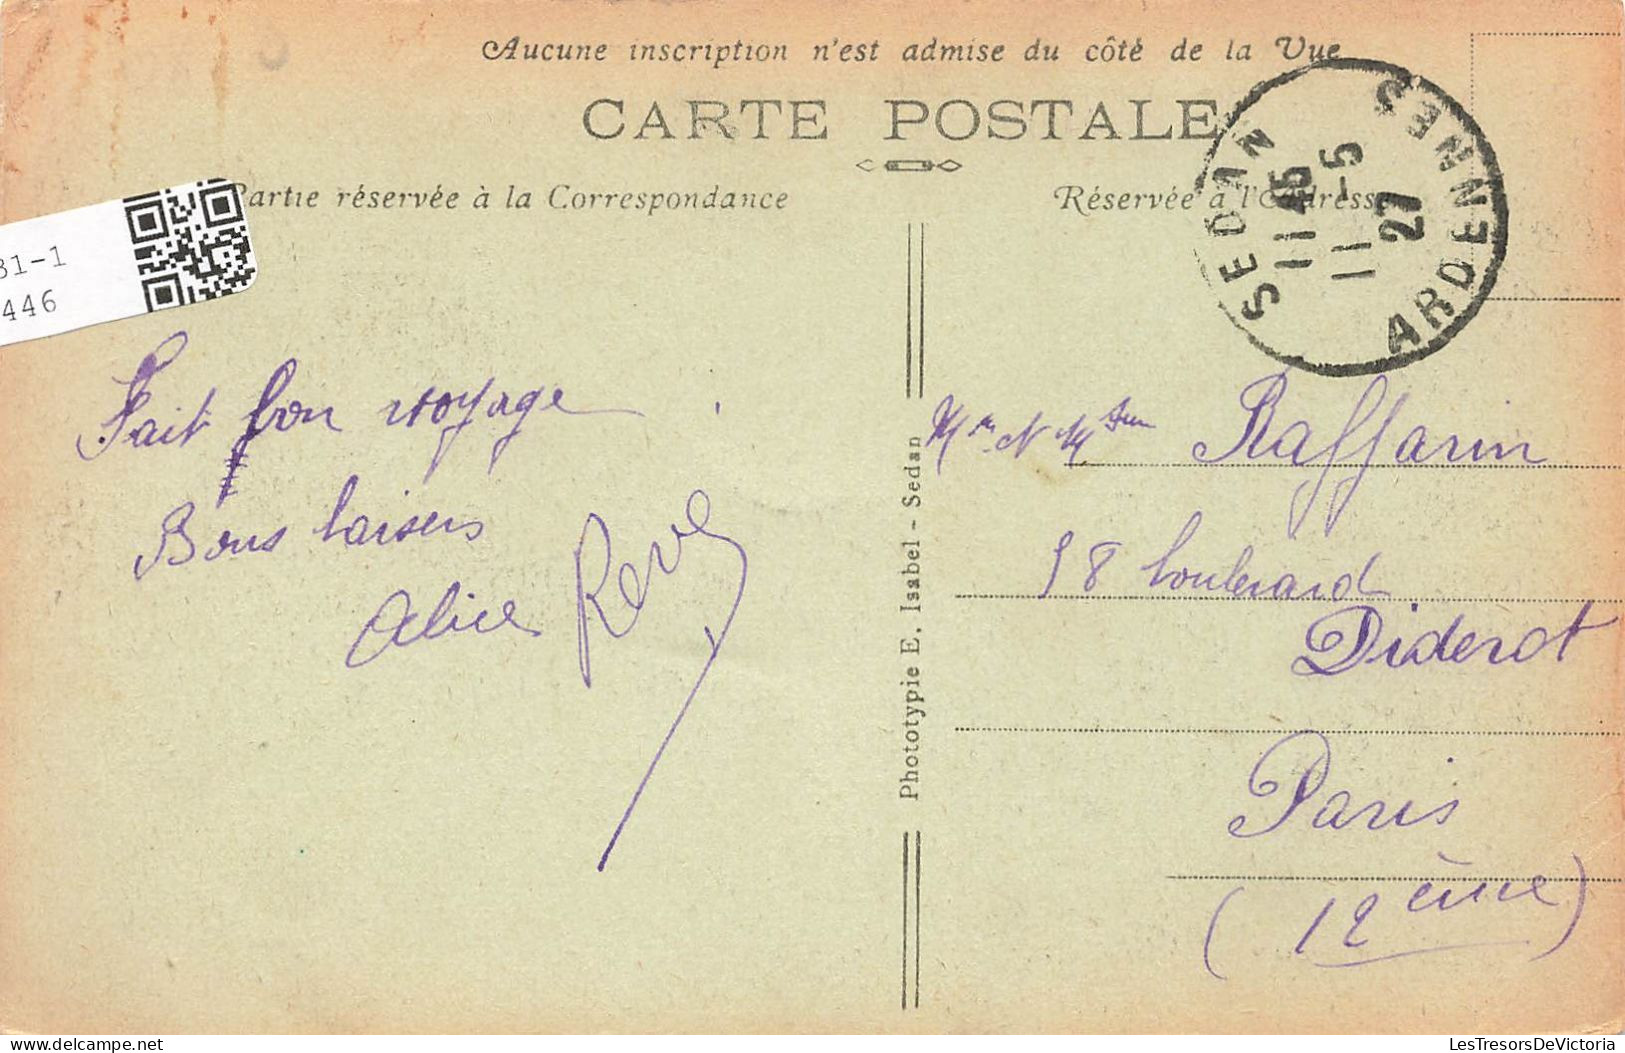 Aucune inscription n'est admise du côté de la Vue
CARTE POSTALE
Partie réservée à la Correspondance
Réservée à l'Adresse
SEDAN
11 45
11-5
27
ARDENNES
31-1
446
Fait bon voyage
Bons baisers
Alice René
Phototypie E. Isabel - Sedan
Raffarin
58 boulevard
Diderot
Paris
(12ème)
LesTresorsDeVictoria